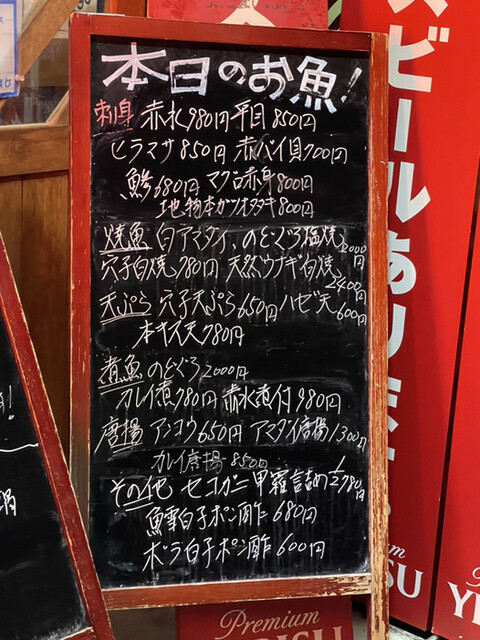 本日のお魚!
刺身 赤水980円 平目850円
ヒラマサ850円 赤バイ貝700円
鯵680円 マグロ赤身800円
地物本ガツオタタキ800円
焼魚 白アマダイ、のどぐろ塩焼2000円
穴子白焼980円 天然ウナギ白焼2400円
天ぷら 穴子天ぷら650円 ハゼ天600円
本キス天780円
煮魚 のどぐろ2000円
カレイ煮980円 赤水煮付980円
唐揚 アンコウ650円 アマダイ唐揚1300円
カレイ唐揚850円
その他 セコガニ甲羅詰め1/2 980円
魚雲白子ポン酢680円
ボラ白子ポン酢600円
ビールあります
Premium
Premium
YE